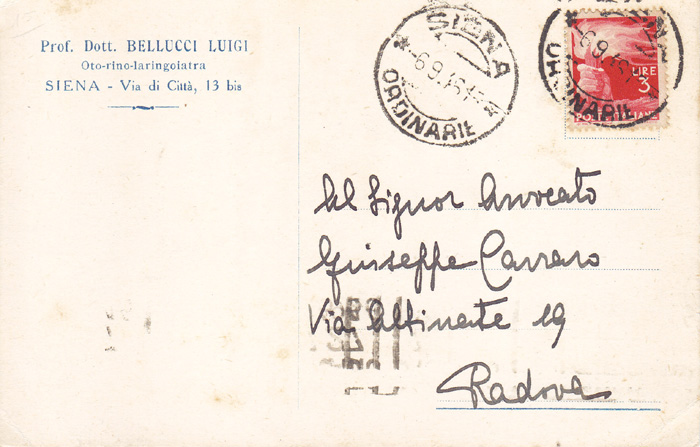 Prof. Dott. BELLUCCI LUIGI
Oto-rino-laringoiatra
SIENA - Via di Città, 13 bis
SIENA
6.9.46.17
ORDINARIE
SIENA
6.9.46.1
ORDINARIE
LIRE
3
POSTE ITALIANE
Al Signor Avvocato
Giuseppe Carraro
Via Altinate 19
Padova